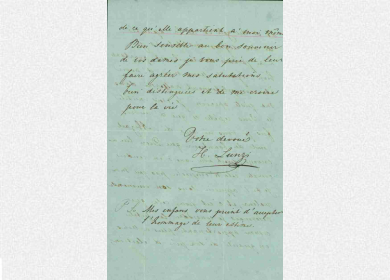 de ce qu'elle appartient à mon
Bien sensible au bon souvenir
de vos dames je vous prie de leur
faire agréer mes salutations
bien distinguées et de me croire
pour la vie
Votre dévoué
H. Lunzi
Mes enfans vous prient d'accepter
l'hommage de leur estime